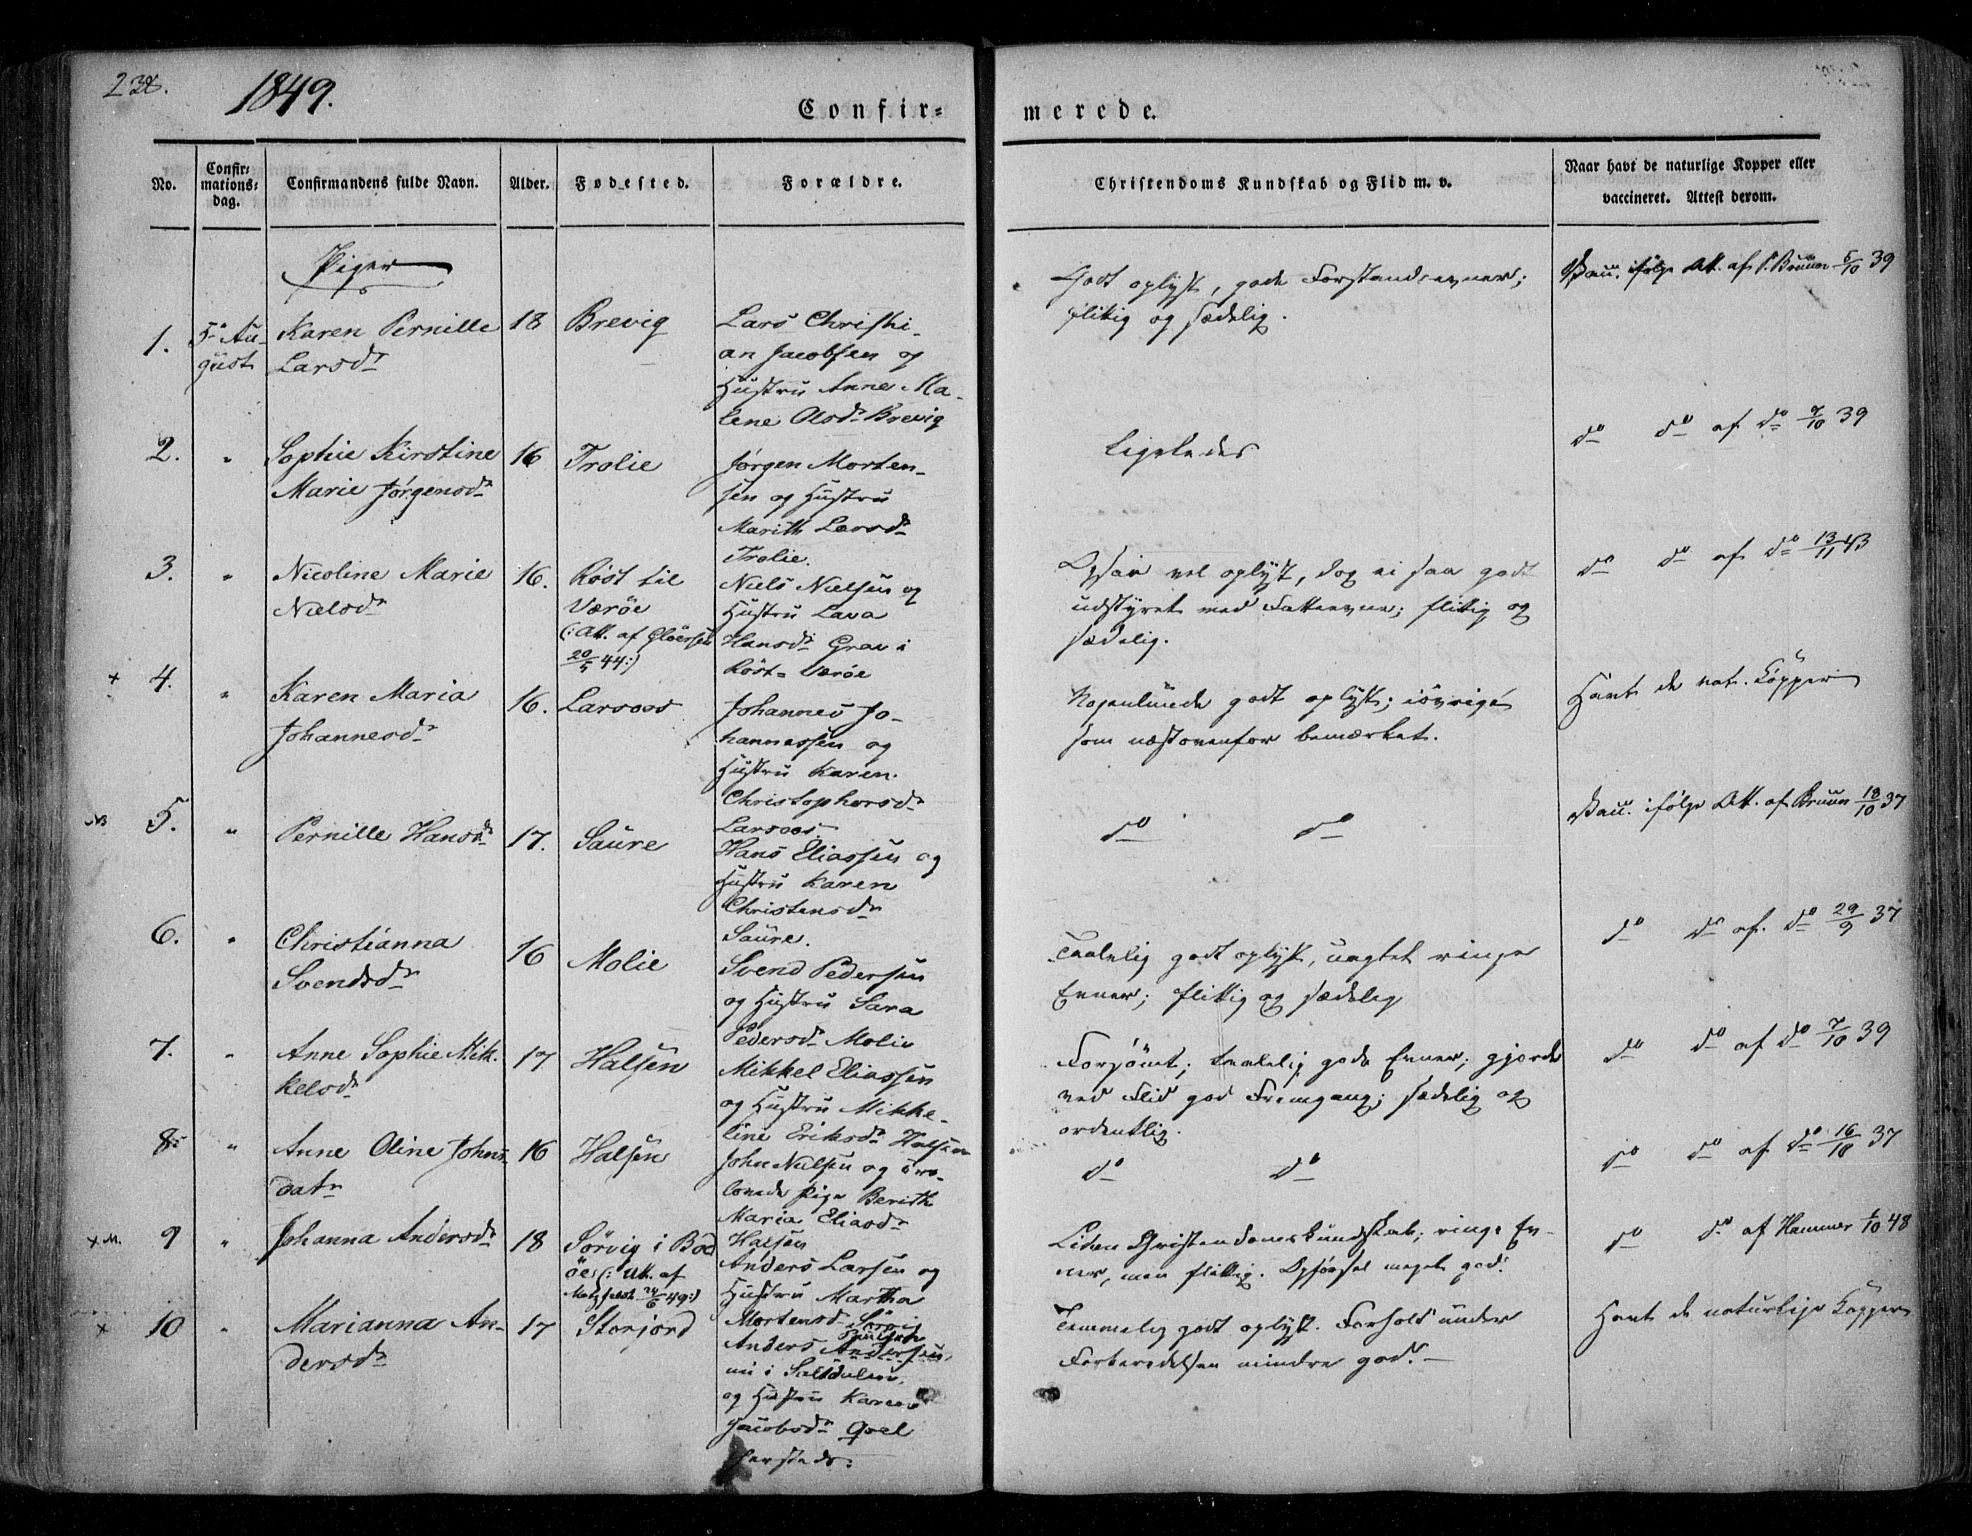 1849.
Confir-
merede.
No.
Confir-
mations-
dag.
Confirmandens fulde Navn.
Alder.
Fødested.
Forældre.
Christendoms Kundskab og Flid m. v.
Naar havt de naturlige Kopper eller
vaccineret. Attest derom.
Piger
1.
5te Au-
gust
Karen Pernille
Larsdr
18
Brevig
Lars Christi-
an Jacobsen og
Hustru Anne Ma-
lene Olsdr Brevig
Godt oplyst, gode Forstandsevner;
flittig og sædelig.
Vacc. ifølge Att. af S. Bruun 5/10 39
2.
"
Sophie Kirstine
Marie Jørgensdr
16
Trolie
Jørgen Morten-
sen og Hustru
Marith Larsdr
Trolie.
Ligeledes
do do af do 7/10 39
3.
"
Nicoline Marie
Nielsdr
16.
Røst til
Værøe
(: Att. af Gløersen
20/5 44:)
Niels Nielsen og
Hustru Lava
Hansdr Grav i
Røst = Værøe
Ogsaa vel oplyst, dog ei saa godt
udstyret med Fatteevne; flittig og
sædelig.
do do af do 13/11 43
+
4.
"
Karen Maria
Johannesdr
16.
Larsoos
Johannes Jo-
hannessen og
Hustru Karen
Christophersdr
Larsoos
Nogenlunde godt oplyst; iøvrigt
som næstovenfor bemærket.
Havt de nat. Kopper
NB
5.
"
Pernille Hansdr
17.
Saure
Hans Eliassen og
Hustru Karen
Christensdr
Saure.
do do
Vacc. ifølge Att. af Bruun 18/10 37
6.
"
Christianna
Svendsdr
16
Molie
Svend Pedersen
og Hustru Sara
Pedersdr Molie
Taalelig godt oplyst, uagtet ringe
Evner; flittig og sædelig
do do af do 29/9 37
7.
"
Anne Sophie Mik-
kelsdr
17
Halsen
Mikkel Eliassen
og Hustru Mikke-
line Eriksdr Halsen
Forsømt; taalelig gode Evner; gjorde
ved Flid god Fremgang; sædelig og
ordentlig.
do do af do 7/10 39
8.
"
Anne Oline Johns-
datr
16
Halsen
John Nielsen og tro-
lovede Pige Berith
Maria Eliasdr
Halsen
do do
do do af do 16/10 37
+ M.
9
"
Johanna Andersdr
18
Sørvig i Bod
øe (: Att. af
24/6 49:)
Anders Larsen og
Hustru Martha
Mortensdr Sørvig
Liden Christendomskundskab; ringe Ev-
ner, men flittig. Opførsel meget god.
do do af Hammer 1/10 48
+
10
"
Marianna An-
dersdr
17
Storjord
Anders Andersen,
nu i Saltdalen,
og Hustru Karen
Jacobsdr
Temmelig godt oplyst. Forhold under
Forberedelsen mindre godt. —
Havt de naturlige Kopper